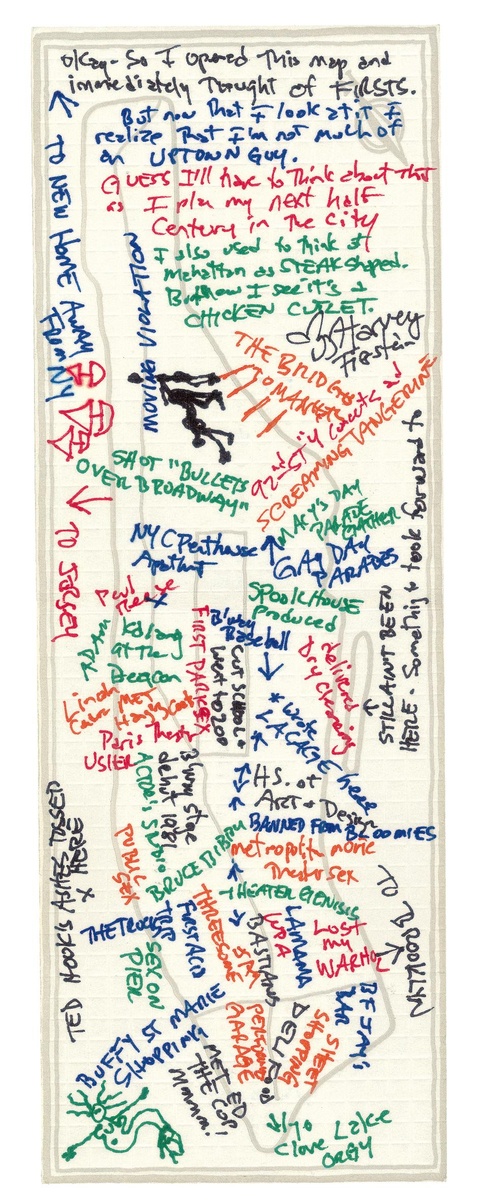 okay- So I opened This map and
immediately Thought of FIRSTS.
But now That I look at it I
realize That I'm not much of
an UPTOWN GUY.
GUESS I'll have to Think about that
as I plan my next half
Century in The City
I also used to think of
Manhattan as STEAK Shaped.
But now I see it's a
CHICKEN CUTLET.
Harvey
Fierstein
← TO NEW HOME AWAY
FROM NY
MOVING VIOLATION
THE BRIDGES
TO MANHATTAN
92nd ST Y Concerts and
SCREAMING TANGERINE
SHOT "BULLETS
OVER BROADWAY"
↓ TO JERSEY
MACY'S DAY
PARADE GATHER
NYC Penthouse
Apartment
GAY DAY
PARADES
SPOOKHOUSE
Produced
STILL AIN'T BEEN
HERE. Something to look forward to
Paul
X
kd lang
at The
Beacon
FIRST PARK SEX
Cut SCHOOL
Went to ZOO
Bway
Baseball
Delivered
Dry Cleaning
Linda
Eder MET
Paris Theater
USHER
* Wrote
LA CAGE here
H.S. of
Art + Design
BANNED FROM BLOOMIES
metropolitan movie
Theater sex
Bway stage
debut 1981
ACTOR'S STUDIO
BRUCE
PUBLIC
SEX
THEATER GENISIS
TED HOOK'S ASHES TOSSED
X HERE
THE TRUCKS
TRIP
FIRST ACID
THREESOME
LAMAMA
WPA
LOST
my
WARHOL
SEX ON
PIER
BF JAY'S
BAR
SHEET
SHOPPING
PERFORMING
GARAGE
BUFFY ST MARIE
SHOPPING
MET ED
THE COP!
Mmmm!
↓ To
Clove Lake
ORGY